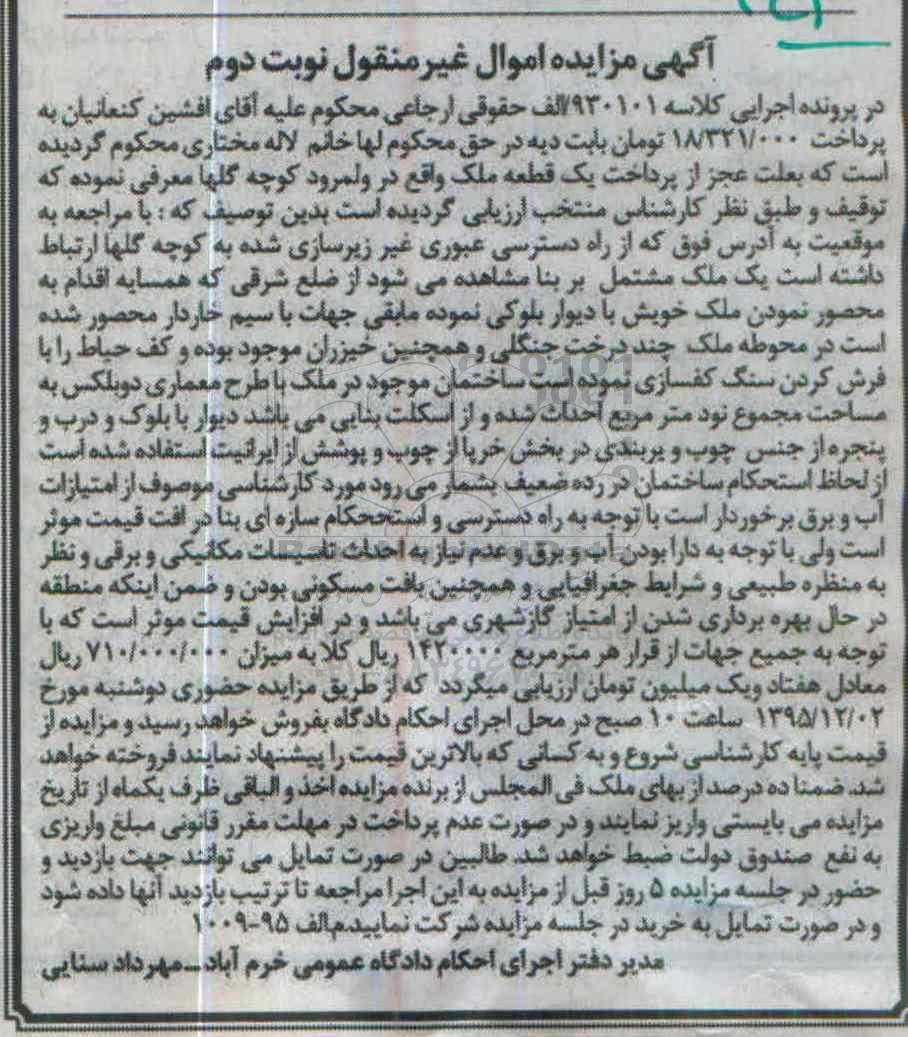 آگهی مزایده اموال غیرمنقول نوبت دوم
در پرونده اجرایی کلاسه ۹۳۰۱۰۱/الف حقوقی ارجاعی محکوم علیه آقای افشین کنعانیان به
پرداخت ۱۸/۳۲۱/۰۰۰ تومان بابت دیه در حق محکوم لها خانم لاله مختاری محکوم گردیده
است که بعلت عجز از پرداخت یک قطعه ملک واقع در ولمرود کوچه گلها معرفی نموده که
توقیف و طبق نظر کارشناس منتخب ارزیابی گردیده است بدین توصیف که : با مراجعه به
موقعیت به آدرس فوق که از راه دسترسی عبوری غیر زیرسازی شده به کوچه گلها ارتباط
داشته است یک ملک مشتمل بر بنا مشاهده می شود از ضلع شرقی که همسایه اقدام به
محصور نمودن ملک خویش با دیوار بلوکی نموده مابقی جهات با سیم خاردار محصور شده
است در محوطه ملک چند درخت جنگلی و همچنین خیزران موجود بوده و کف حیاط را با
فرش کردن سنگ کفسازی نموده است ساختمان موجود در ملک با طرح معماری دوبلکس به
مساحت مجموع نود متر مربع احداث شده و از اسکلت بنایی می باشد دیوار با بلوک و درب و
پنجره از جنس چوب و پربندی در بخش خرپا از چوب و پوشش از ایرانیت استفاده شده است
از لحاظ استحکام ساختمان در رده ضعیف بشمار می رود مورد کارشناسی موصوف از امتیازات
آب و برق برخوردار است با توجه به راه دسترسی و استحکام سازه ای بنا در افت قیمت موثر
است ولی با توجه به دارا بودن آب و برق و عدم نیاز به احداث تاسیسات مکانیکی و برقی و نظر
به منظره طبیعی و شرایط جغرافیایی و همچنین بافت مسکونی بودن و ضمن اینکه منطقه
در حال بهره برداری شدن از امتیاز گازشهری می باشد و در افزایش قیمت موثر است که با
توجه به جمیع جهات از قرار هر مترمربع ۱۴۲۰۰۰۰ ریال کلا به میزان ۷۱۰/۰۰۰/۰۰۰ ریال
معادل هفتاد ویک میلیون تومان ارزیابی میگردد که از طریق مزایده حضوری دوشنبه مورخ
۱۳۹۵/۱۲/۰۲ ساعت ۱۰ صبح در محل اجرای احکام دادگاه بفروش خواهد رسید و مزایده از
قیمت پایه کارشناسی شروع و به کسانی که بالاترین قیمت را پیشنهاد نمایند فروخته خواهد
شد. ضمنا ده درصد از بهای ملک فی المجلس از برنده مزایده اخذ و الباقی ظرف یکماه از تاریخ
مزایده می بایستی واریز نمایند و در صورت عدم پرداخت در مهلت مقرر قانونی مبلغ واریزی
به نفع صندوق دولت ضبط خواهد شد. طالبین در صورت تمایل می توانند جهت بازدید و
حضور در جلسه مزایده ۵ روز قبل از مزایده به این اجرا مراجعه تا ترتیب بازدید آنها داده شود
و در صورت تمایل به خرید در جلسه مزایده شرکت نمایید.م.الف ۹۵-۱۰۰۹
مدیر دفتر اجرای احکام دادگاه عمومی خرم آباد_مهرداد سنایی